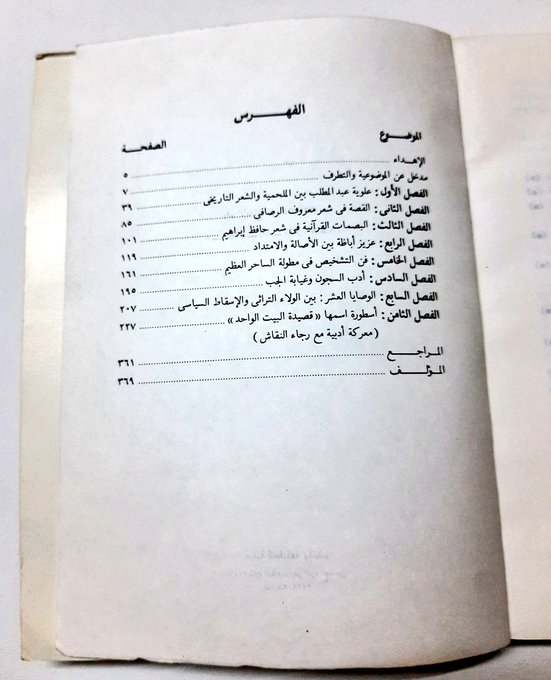 الفهـــرس
الموضوع الصفحة
الإهداء ٥
مدخل عن الموضوعية والتطرف ٧
الفصل الأول : علوية عبد المطلب بين الملحمية والشعر التاريخى ٣٩
الفصل الثانى : القصة فى شعر معروف الرصافى ٨٥
الفصل الثالث : البصمات القرآنية فى شعر حافظ إبراهيم ١٠١
الفصل الرابع : عزيز أباظة بين الأصالة والامتداد ١١٩
الفصل الخامس : فن التشخيص فى مطولة الساحر العظيم ١٦١
الفصل السادس : أدب السجون وغيابة الجب ١٩٥
الفصل السابع : الوصايا العشر : بين الولاء التراثى والإسقاط السياسى ٢٠٧
الفصل الثامن : أسطورة اسمها «قصيدة البيت الواحد» ٢٢٧
( معركة أدبية مع رجاء النقاش )
المراجـــع ٣٦١
المؤلـــف ٣٦٩